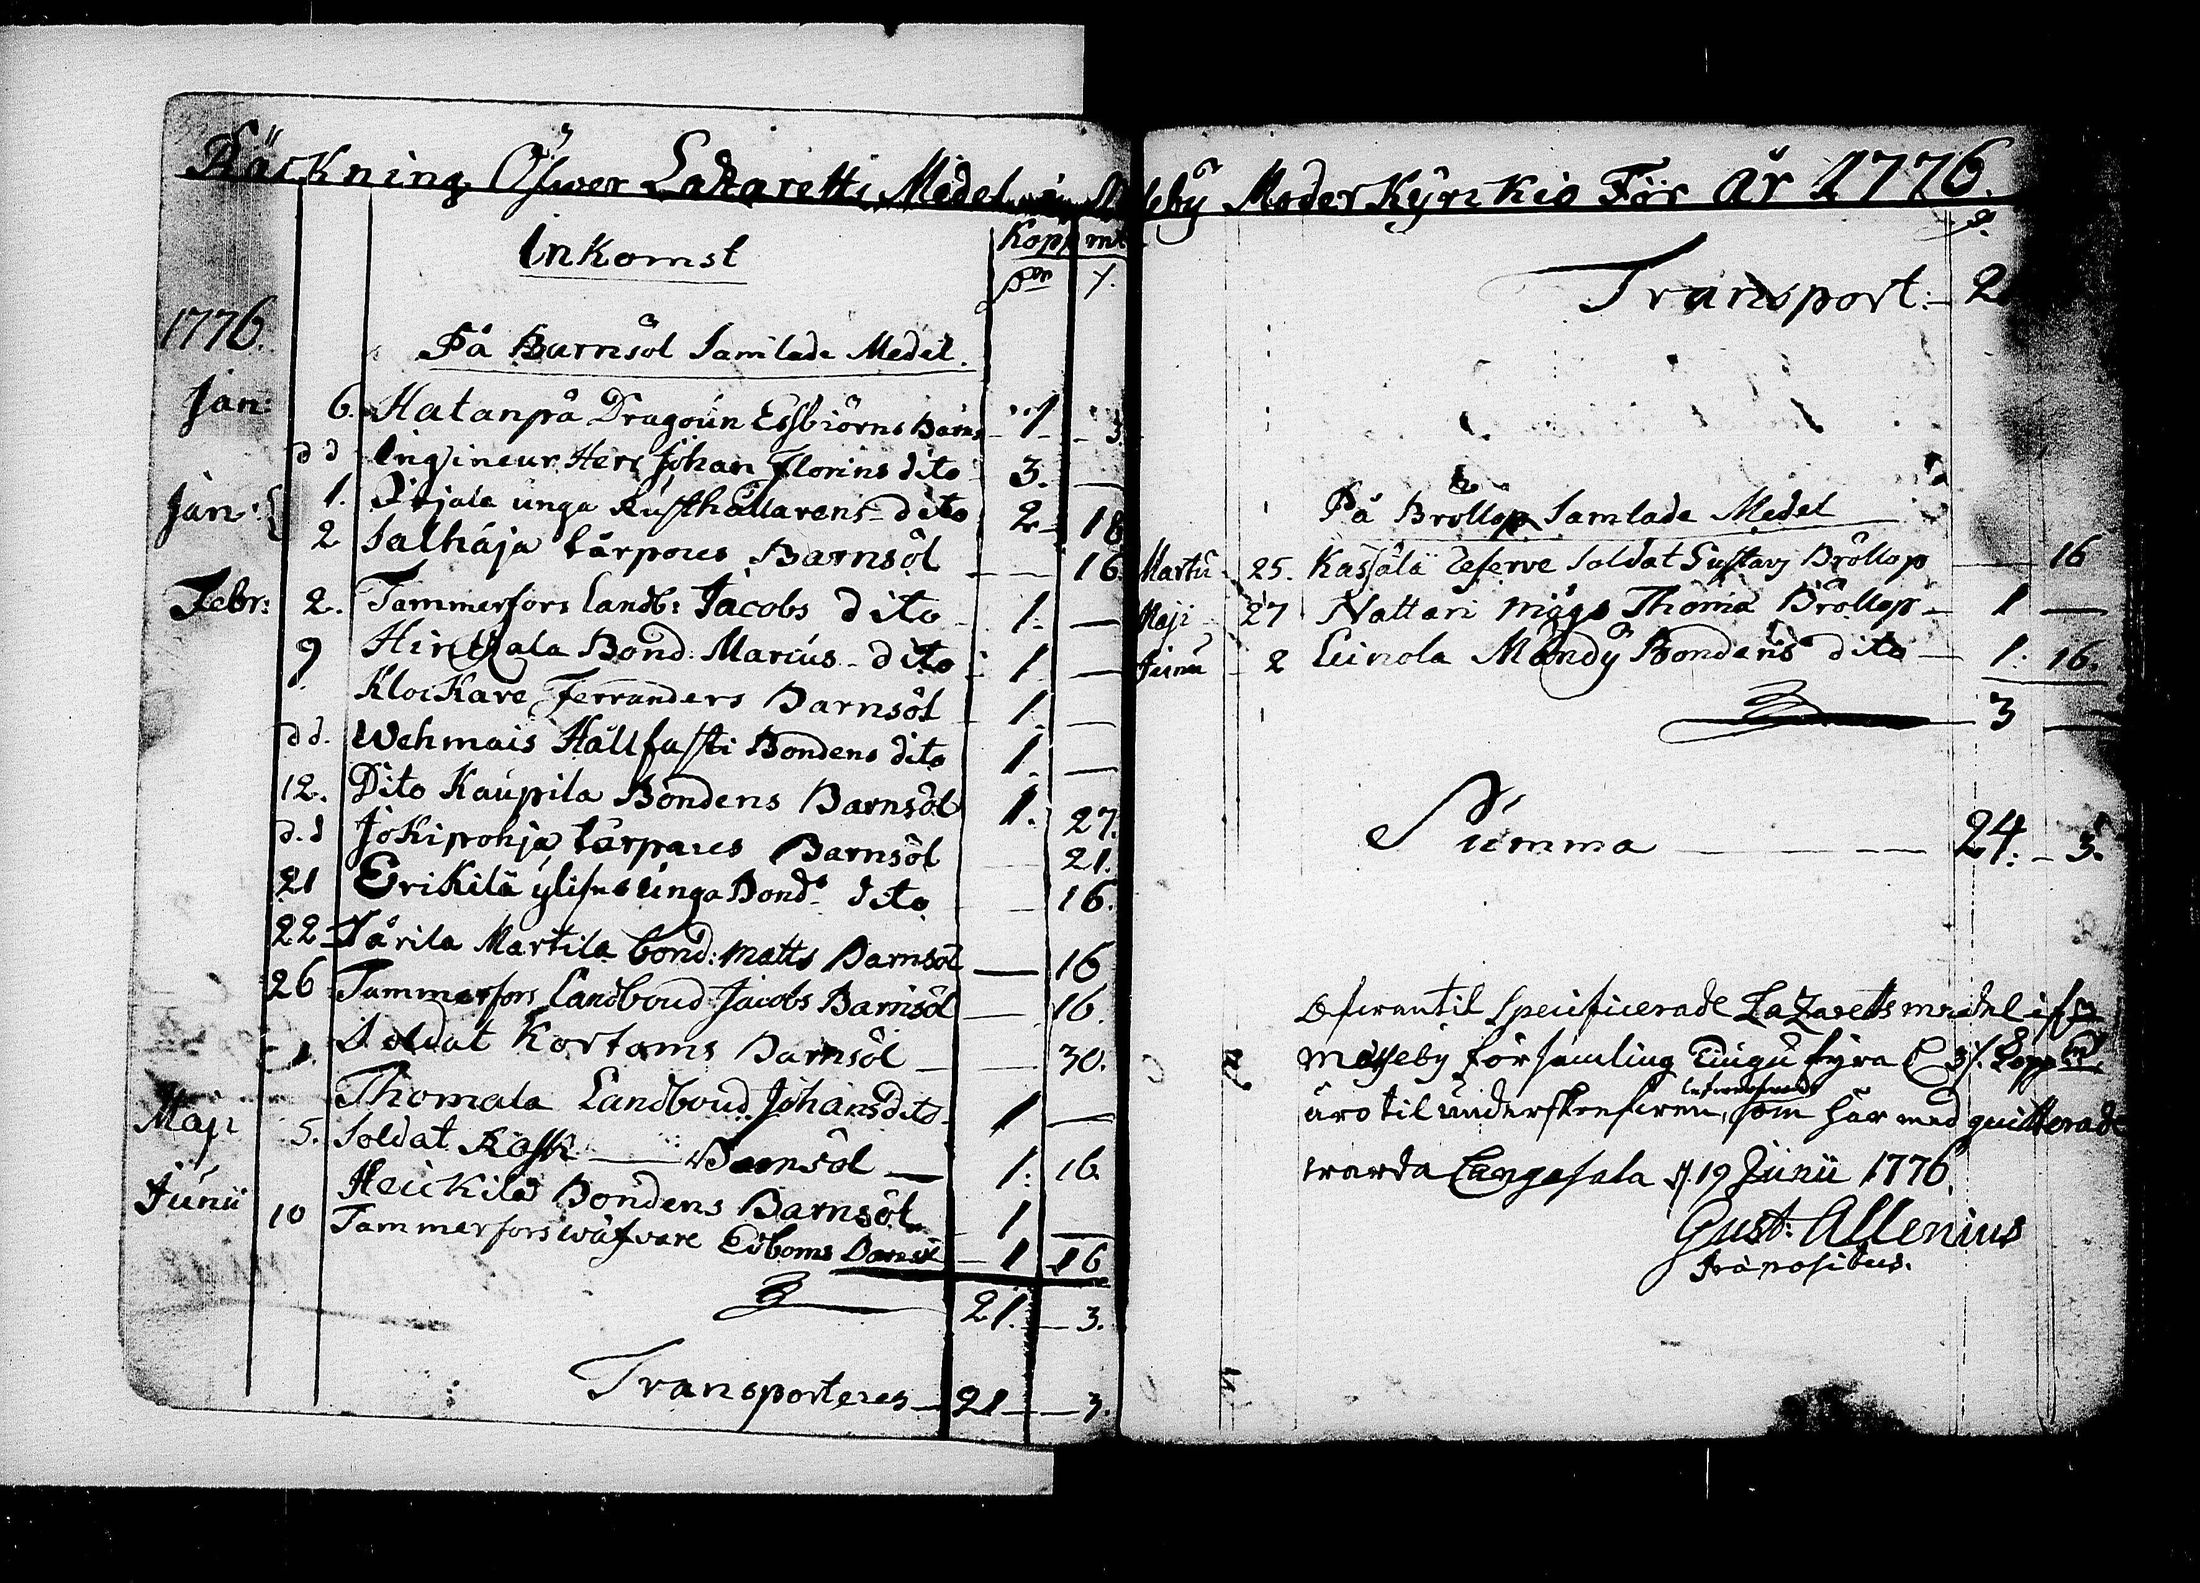 Räckning Öfwer Lazaretts Medel Moder Kyrckio För år 1776.
Inkomst
Kopp mt
1776.
På Barnsöl Samlade Medel.
Jan: 6. Hatanpä Dragoun Essbiörns Barns 1 3.
d d Ingineur Herr Johan Florins dito 3. —
Jan: 1. unga Rusthållarens dito 2 18
2 Salhåja tårpares Barnsöl — 16.
Febr: 2. Tammerfors Landb: Jacobs dito 1. —
9 Bond. Marcus dito 1 —
Klockare Ferranders Barnsöl 1. —
d d. Wehmais Hällfasti Bondens dito 1. —
12. Dito Kaupila Bondens Barnsöl 1. 27.
d. d Jokipohja tårpares Barnsöl — 21.
21 Erikilä ylisen unga Bond. dito — 16.
22 Järila Martila bond: Matts Barnsöl — 16
26 Tammerfors Landboud Jacobs Barnsöl — 16.
Soldat Kortoms Barnsöl — 30.
Thomala Landboud Johans dito 1 —
Maji 5. Soldat Rask — Barnsöl — 1: 16
Heickilä Bondens Barnsöl 1 —
Junii 10 Tammerfors wäfvare Edboms Barnsöl — 1 16
21. — 3.
Transporteres — 21 — 3.
Transport: — 2
På Bröllop Samlade Medel
Martii 25. Kassälä reserve Soldat Gustavs Bröllop — 16
Maji 27 Nattari mågs Thoma Bröllop — 1 —
Junii 2 Leinola Mondy Bondens dito — 1: 16.
3 —
Summa — — — 24: — 3.
Ofwantil Specificerade Lazaretts medel
församling fyra Kopp mt
äro til underskrefwen, som här med quitterade
warda Cangasala d. 19 Junii 1776.
Gust: Allenius
Präpositus.